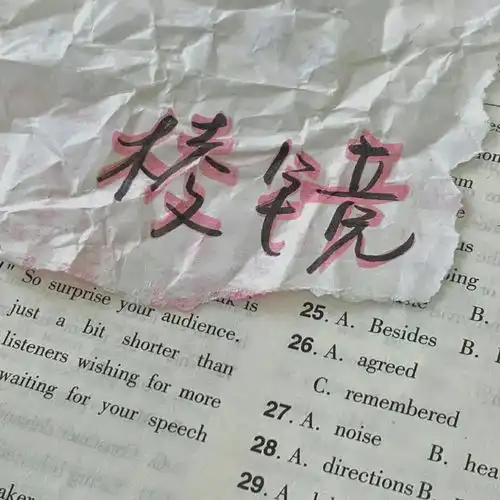 棱镜
So surprise your audience.
just a bit shorter than
listeners wishing for more
waiting for your speech
is
25. A. Besides B.
26. A. agreed
C. remembered
27. A. noise B. hea
28. A. directions B.
29. A.
B.